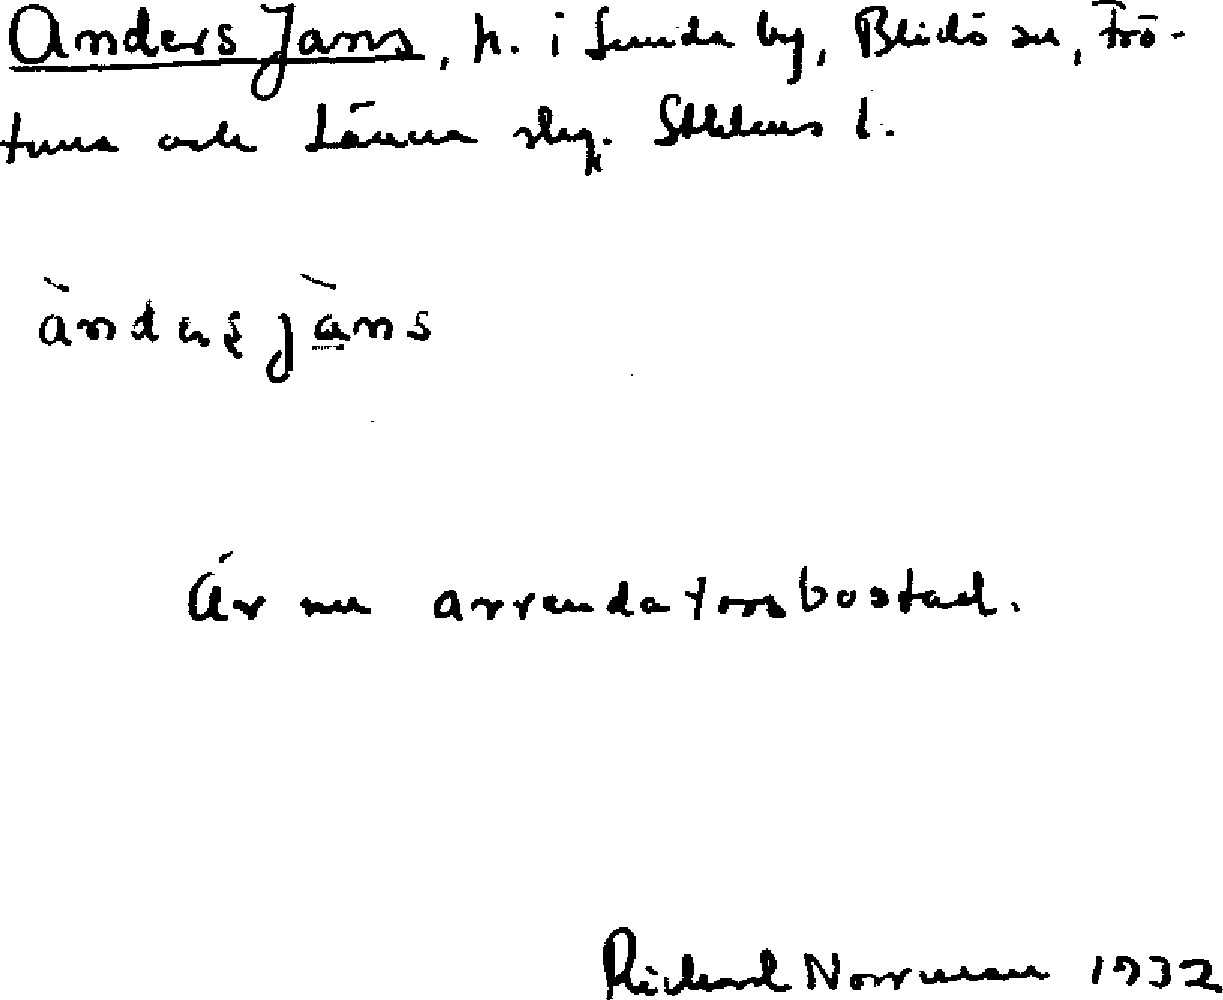 Anders Jans, h. i Sunda by, Blidö sn, Frö-
tuna och Länna slg. Sthlms l.
àndaş jàns
Är nu arrendatorsbostad.
Richard Norrman 1932